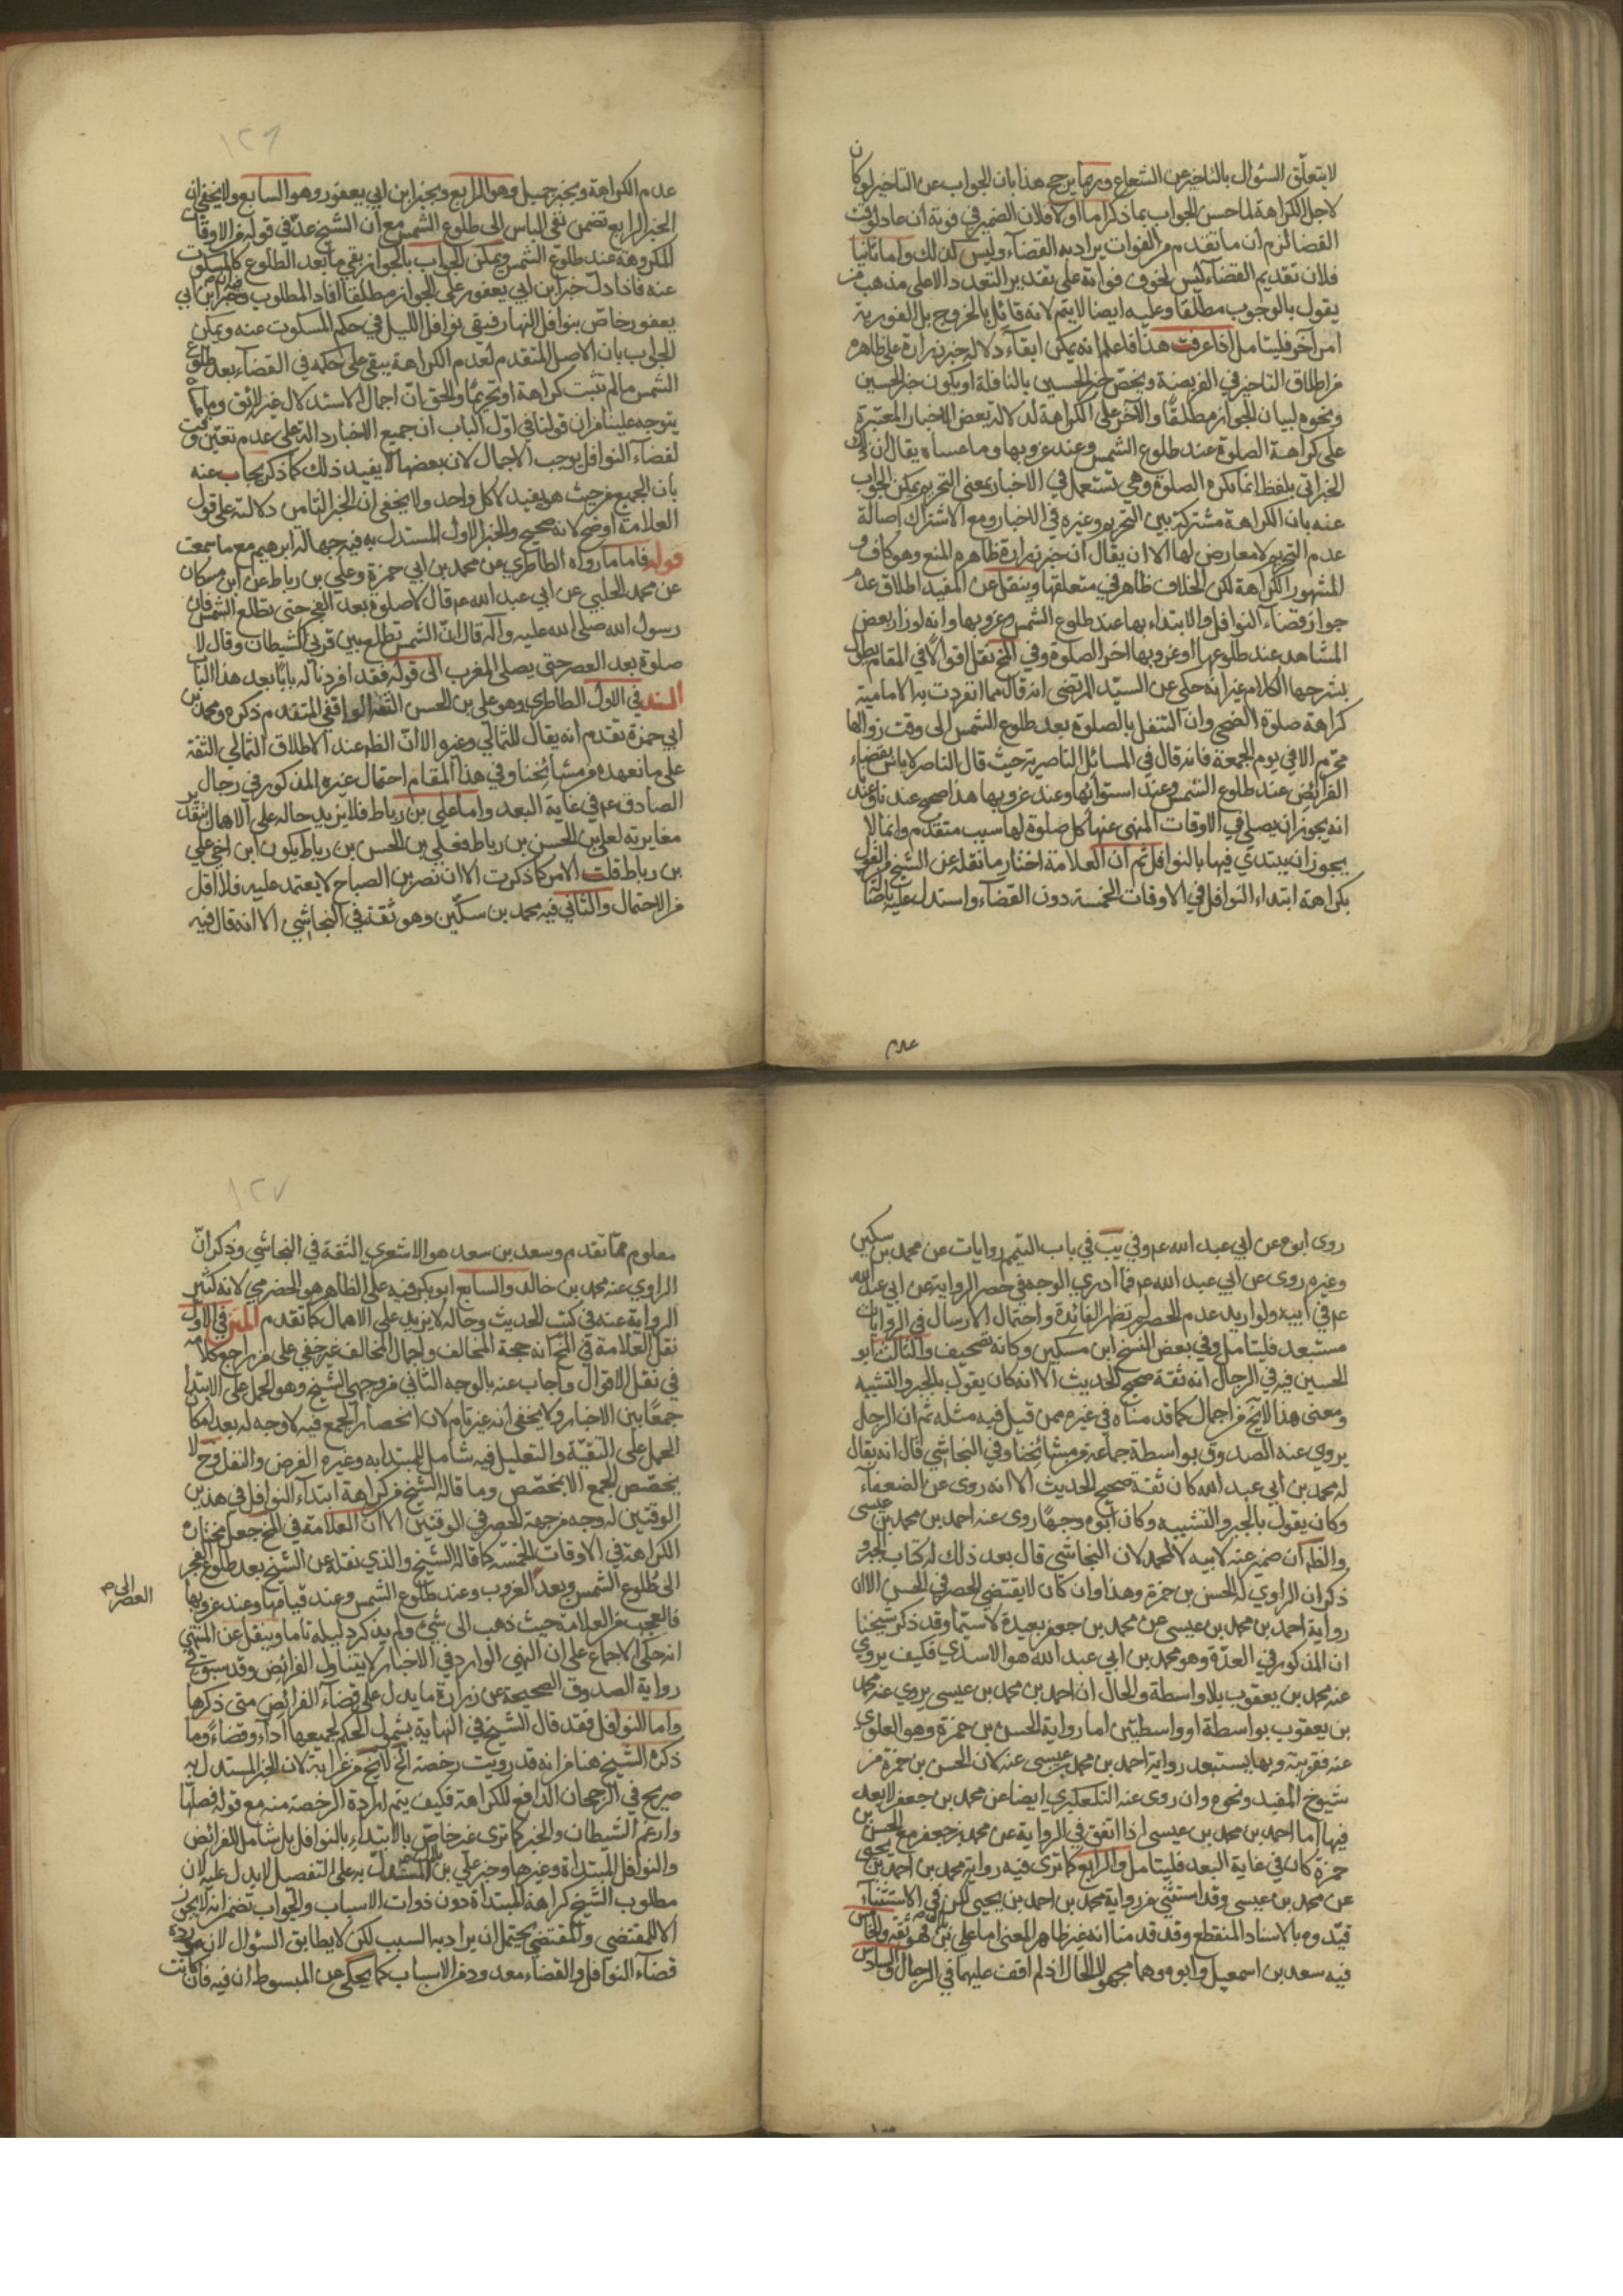 لا يتعلّق السؤال بالتاخير عن الشعاع وربما يرجح هذا بان الجواب عن التاخير لو كان
لاجل الكراهة لما حسن الجواب بما ذكر اما اولا فلان الضمير في فوته ان عاد لوقت
القضا لزم ان ما تقدم من الفوات يراد به القضاء وليس كذلك واما ثانيا
فلان تقديم القضاء ليس لخوف فواته على تقدير التعدد الا على مذهب من
يقول بالوجوب مطلقا وعليه ايضا لا يتم لانه قائل بالخروج بل الفورية
امر آخر فليتامل اذا عرفت هذا فاعلم انه يمكن ابقاء دلالة خبر زرارة على ظاهره
من اطلاق التاخير في الفريضة ويخصّ خبر الحسين بالنافلة او يكون خبر الحسين
ونحوه لبيان الجواز مطلقًا والآخر على الكراهة لدلالة بعض الاخبار المعتبرة
على كراهة الصلوة عند طلوع الشمس وعند غروبها وما عساه يقال ان ذلك
الخبر اتى بلفظ انما نكره الصلوة وهي تستعمل في الاخبار بمعنى التحريم يمكن الجواب
عنه بان الكراهة مشتركة بين التحريم وغيره في الاخبار ومع الاشتراك اصالة
عدم التحريم لا معارض لها الا ان يقال ان خبر زرارة ظاهره المنع وهو كاف و
المشهور الكراهة لكن الخلاف ظاهر في متعلقها وينقل عن المفيد اطلاق عدم
جواز قضاء النوافل والابتداء بها عند طلوع الشمس وغروبها وانه لو زار بعض
المشاهد عند طلوعها او غروبها اخر الصلوة وفي المخ نقل اقوالا في المقام يطول
بشرحها الكلام غير انه حكى عن السيّد المرتضى انه قال مما انفردت به الامامية
كراهة صلوة الضحى وان التنفل بالصلوة بعد طلوع الشمس الى وقت زوالها
محرّم الا في يوم الجمعة فانه قال في المسائل الناصرية حيث قال الناصر لا باس بقضاء
الفرائض عند طلوع الشمس وعند استوائها وعند غروبها هذا صحيح عندنا وعندنا
انه يجوز ان يصلي في الاوقات المنهى عنها كل صلوة لها سبب متقدم وانما لا
يجوز ان يبتدي فيها بالنوافل ثم ان العلامة اختار ما نقله عن الشيخ من القول
بكراهة ابتداء النوافل في الاوقات الخمسة دون القضاء واستدل عليه باصالة
عدم
١٢٦
عدم الكراهة وبخبر جميل وهو الرابع وبخبر ابن ابي يعفور وهو السابع ولا يخفى ان
الخبر الرابع تضمن نفي الباس الى طلوع الشمس مع ان الشيخ عدّ في قوله من الاوقات
المكروهة عند طلوع الشمس ويمكن الجواب بالجواز بقي ما بعد الطلوع كالمسكوت
عنه فاذا دلّ خبر ابن ابي يعفور على الجواز مطلقا افاد المطلوب وفيه ان خبر ابن ابي
يعفور خاصّ بنوافل النهار فتبقى نوافل الليل في حكم المسكوت عنه ويمكن
الجواب بان الاصل المتقدم لعدم الكراهة يبقى على حكمه في القضاء بعد طلوع
الشمس ما لم تثبت كراهة او تحريم والحق ان اجمال الاستدلال غير لائق وما
يتوجه علينا من ان قولنا في اوّل الباب ان جميع الاخبار دالة على عدم تعيّن وقت
لقضاء النوافل يوجب الاجمال لان بعضها لا يفيد ذلك كما ذكر يجاب عنه
بان الجميع من حيث هو يفيد لا كل واحد ولا يخفى ان الخبر الثامن دلالته على قول
العلامة اوضح لانه صحيح والخبر الاول المستدل به فيه جهالة ابرهيم مع ما سمعت
قوله فاما ما رواه الطاطري عن محمد بن ابي حمزة وعلي بن رباط عن ابن مسكان
عن محمد الحلبي عن ابي عبد الله عم قال لا صلوة بعد الفجر حتى تطلع الشمس فان
رسول الله صلى الله عليه وآله قال انّ الشمس تطلع بين قرني الشيطان وقال لا
صلوة بعد العصر حتى يصلى المغرب الى قوله فقد افردنا له بابًا بعد هذا الباب
السند في الاول الطاطري وهو علي بن الحسن الثقة الواقفي المتقدم ذكره ومحمد بن
ابي حمزة تقدم انه يقال للثمالي وغيره الا انّ الظه عند الاطلاق الثمالي الثقة
على ما نعهده من مشائخنا وفي هذا المقام احتمال غيره المذكور في رجال
الصادق عم في غاية البعد واما علي بن رباط فلا يزيد حاله على الاهمال بتقدير
مغايرته لعلي بن الحسن بن رباط فعلي بن الحسن بن رباط يكون ابن اخي علي
بن رباط قلت الامر كما ذكرت الا ان نصر بن الصباح لا يعتمد عليه فلا اقل
من الاحتمال والثاني فيه محمد بن سكّين وهو ثقة في النجاشي الا انه قال فيه
روى ابوه عن ابي عبد الله عم وفي يب في باب التيمم روايات عن محمد بن سكين
وغيره روى عن ابي عبد الله عم فما ادري الوجه في حصر الرواية عن ابي عبد الله
عم في ابيه ولو اريد عدم الحصر لم تظهر الفائدة واحتمال الارسال في الروايات
مستبعد فليتامل وفي بعض النسخ ابن مسكين وكانه تصحيف والثالث ابو
الحسين فيه في الرجال انه ثقة صحيح الحديث الا انه كان يقول بالجبر والتشبيه
ومعنى هذا لا يخ من اجمال كما قدمناه في غيره ممن قيل فيه مثله ثم ان الرجل
يروي عنه الصدوق بواسطة جماعة من مشائخنا وفي النجاشي قال انه يقال
له محمد بن ابي عبد الله كان ثقة صحيح الحديث الا انه روى عن الضعفاء
وكان يقول بالجبر والتشبيه وكان ابوه وجهًا روى عنه احمد بن محمد بن عيسى
والظه ان ضمير عنه لابيه لا لمحمد لان النجاشي قال بعد ذلك له كتاب الجبر و
ذكر ان الراوي له الحسن بن حمزة وهذا وان كان لا يقتضي الحصر في الحسن الا ان
رواية احمد بن محمد بن عيسى عن محمد بن جعفر بعيدة لا سيّما وقد ذكر شيخنا
ان المذكور في العدّة وهو محمد بن ابي عبد الله هو الاسدي فكيف يروي
عنه محمد بن يعقوب بلا واسطة والحال ان احمد بن محمد بن عيسى يروي عنه محمد
بن يعقوب بواسطة او واسطتين اما رواية الحسن بن حمزة وهو العلوي
عنه فقريبة وبها يستبعد رواية احمد بن محمد بن عيسى عنه لان الحسن بن حمزة من
شيوخ المفيد ونحوه وان روى عنه التلعكبري ايضا عن محمد بن جعفر لا بعد
فيها اما احمد بن محمد بن عيسى اذا اتفق في الرواية عن محمد بن جعفر مع الحسن بن
حمزة كان في غاية البعد فليتامل والرابع كما ترى فيه رواية محمد بن احمد بن يحيى
عن محمد بن عيسى وقد استثني من رواية محمد بن احمد بن يحيى لكن في الاستثناء
قيّدوه بالاسناد المنقطع وقد قدمنا انه غير ظاهر المعنى اما علي بن بلال فهو ثقة والخامس
فيه سعد بن اسمعيل وابوه وهما مجهولا الحال اذ لم اقف عليهما في الرجال والسادس
١٢٧
معلوم ممّا تقدم وسعد بن سعد هو الاشعري الثقة في النجاشي وذكر انّ
الراوي عنه محمد بن خالد والسابع ابو بكر فيه على الظاهر هو الحضرمي لانه كثير
الرواية عنه في كتب الحديث وحاله لا يزيد على الاهمال كما تقدم المتن في الاول
نقل العلامة في المخ انه حجة المخالف واجمال المخالف غير خفي على من راجع كلامه
في نقل الاقوال واجاب عنه بالوجه الثاني من وجهي الشيخ وهو الحمل على الابتداء
جمعًا بين الاخبار ولا يخفى انه غير تام لان انحصار الجمع فيه لا وجه له بعد امكان
الحمل على التقيّة والتعليل فيه شامل للمبتدا به وغيره الفرض والنفل وح لا
يخصّص الجمع الا بمخصّص وما قاله الشيخ من كراهة ابتداء النوافل في هذين
الوقتين له وجه من جهة الحصر في الوقتين الا ان العلامة في المخ جعل مختاره
الكراهة في الاوقات الخمسة كما قاله الشيخ والذي نقله عن الشيخ بعد طلوع الفجر
الى طلوع الشمس وبعد العصر الى الغروب وعند طلوع الشمس وعند قيامها وعند غروبها
فالعجب من العلامة حيث ذهب الى شيء ولم يذكر دليله تاما وينقل عن المنتهى
انه حكى الاجماع على ان النهي الوارد في الاخبار لا يتناول الفرائض وقد سبق في
رواية الصدوق الصحيحة عن زرارة ما يدل على قضاء الفرائض متى ذكرها
واما النوافل فقد قال الشيخ في النهاية بشمول الحكم لجميعها اداء وقضاءً وما
ذكره الشيخ هنا من انه قد رويت رخصة الخ لا يخ من غرابة لان الخبر المستدل به
صريح في الرجحان الدافع للكراهة فكيف يتم ارادة الرخصة منه مع قوله فصلّها
وارغم الشيطان والخبر كما ترى غير خاصّ بالابتداء بالنوافل بل شامل للفرائض
والنوافل المبتداة وغيرها وخبر علي بن بلال المستدلّ به على التفصيل لا يدل عليه لان
مطلوب الشيخ كراهة المبتداة دون ذوات الاسباب والجواب تضمن انه لا يجوز
الا للمقتضي والمقتضي يحتمل ان يراد به السبب لكن لا يطابق السؤال لان مورده
قضاء النوافل والقضاء معدود من الاسباب كما يحكى عن المبسوط ان فيه فان كانت